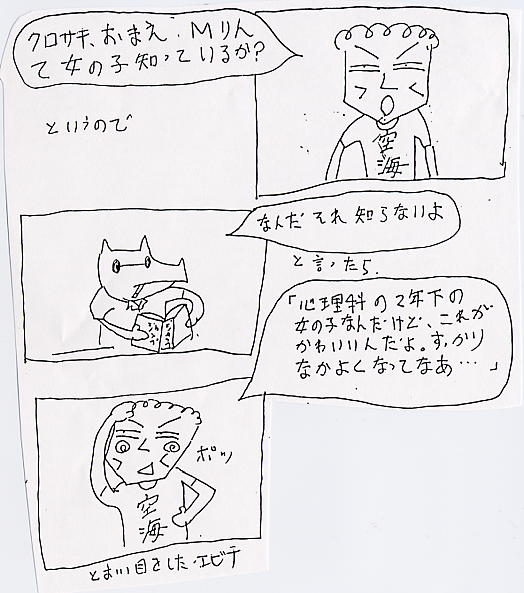 クロサキ、おまえ、Mりん
て女の子知っているか？
というので
空
海
なんだそれ知らないよ
と言ったら、
「心理科の2年下の
女の子なんだけど、これが
かわいいんだよ。すっかり
なかよくなってなあ…」
ポッ
空
海
とおい目をした・エビテ